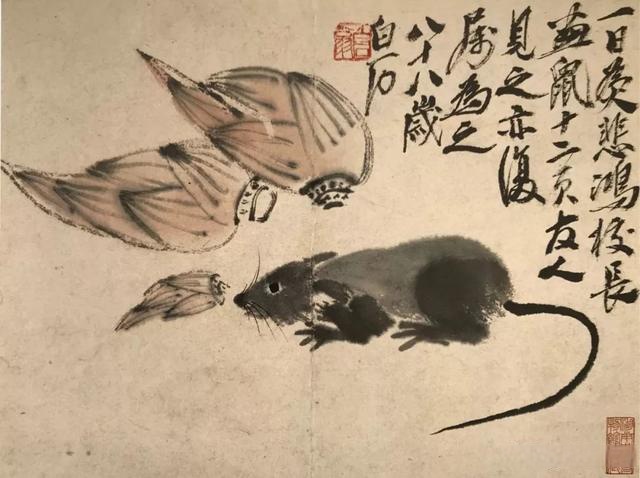 一日悲鴻校長
畫鼠十二頁友人
見之亦復
屬為之
八十八歲
白石
白石翁